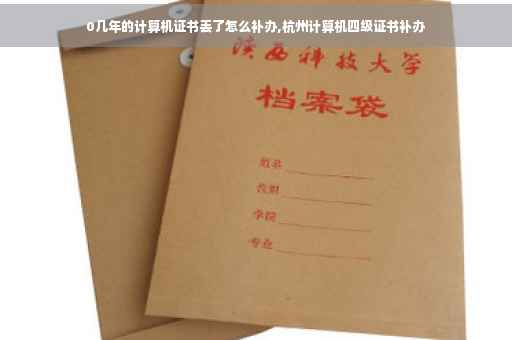 o几年的计算机证书丢了怎么补办,杭州计算机四级证书补办
陕西科技大学
档案袋
姓名
学院
专业